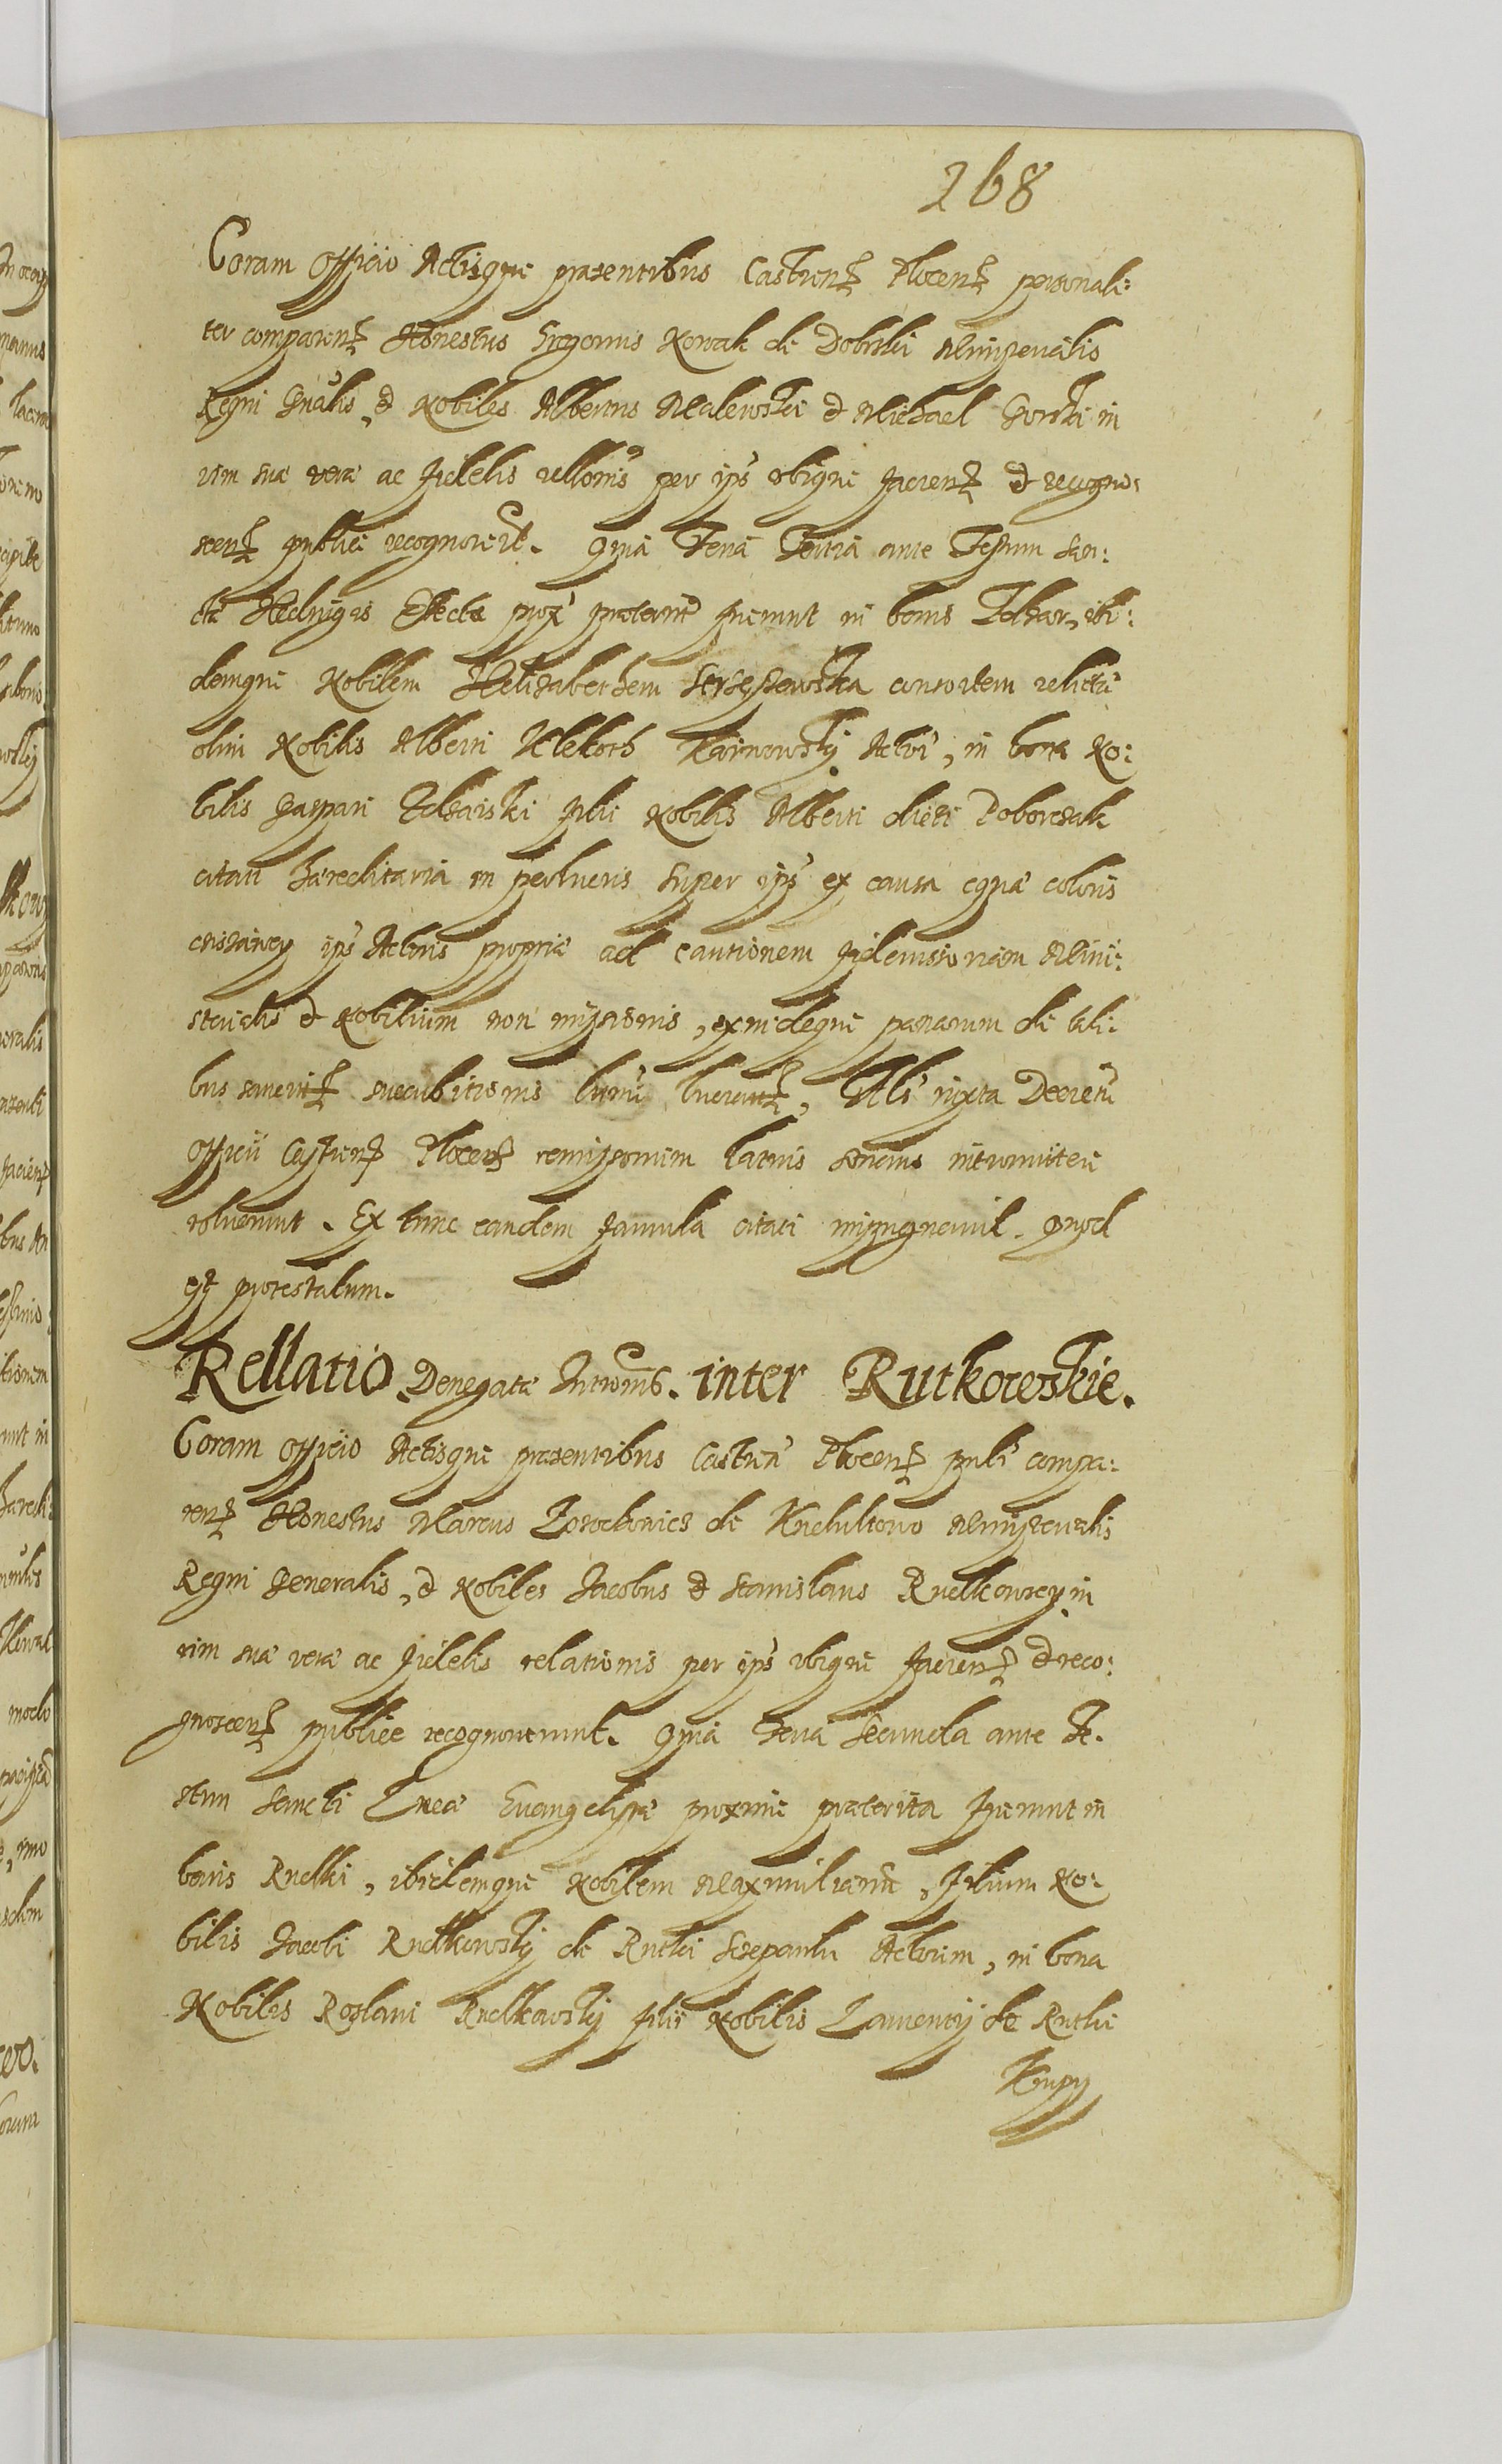 268
Coram Officio Actisque præsentibus Castren Plocen personali:
ter comparen Honestus Gregorius Nowak de Dobrski Ministerialis
Regni Gnãlis, & Nobiles Albertus Malewski & Michael Gorski in
vim suæ veræ ac fidelis rellonis per ips ubique facien & recogno:
scen publice recognoverūt. Quia Feria Tertia ante Festum San:
ctæ Hedvigis Electæ prox præterit fuerunt in bonis , ibi:
demque Nobilem Helisabethem consortem relictā
olim Nobilis Alberti Klekoth Actorē, in bona No:
bilis Gaspari filii Nobilis Alberti dicti Poborczak
citati hæreditaria in perlucris super ips ex causa equæ coloris
ips Actoris propriæ ad cautionem fideiussoriam Mini:
sterialis & Nobilium non missionis, exindeque pænarum de tali:
bus sancit succubitionis lucrū lucrat, Als iuxta Decretū
Officii Castren Plocen remissionum latius sonans intromittere
voluerunt. Ex tunc eandem famula citati impugnavit. Quod
est protestatum.
Rellatio Denegatæ Intromis. inter Rutkowskie.
Coram Officio Actisque præsentibus Castren Plocen prnli compa:
ren Honestus Marcus de Ministerialis
Regni Generalis, & Nobiles Jacobus & Stanislaus Rudkowscy in
vim suæ veræ ac fidelis relationis per ips ubique facien & reco:
gnoscen publice recognoverunt. Quia Feria Secunda ante Fe:
stum Sancti Lucæ Evangelistæ proxime præterita fuerunt in
bonis Rudki, ibidemque Nobilem Maximilianū, filium No:
bilis Jacobi Rudkowsky de Rutki Actorem, in bona
Nobiles Roslani Rudkowsky filii Nobilis Laurenty de Rutki
Krupy